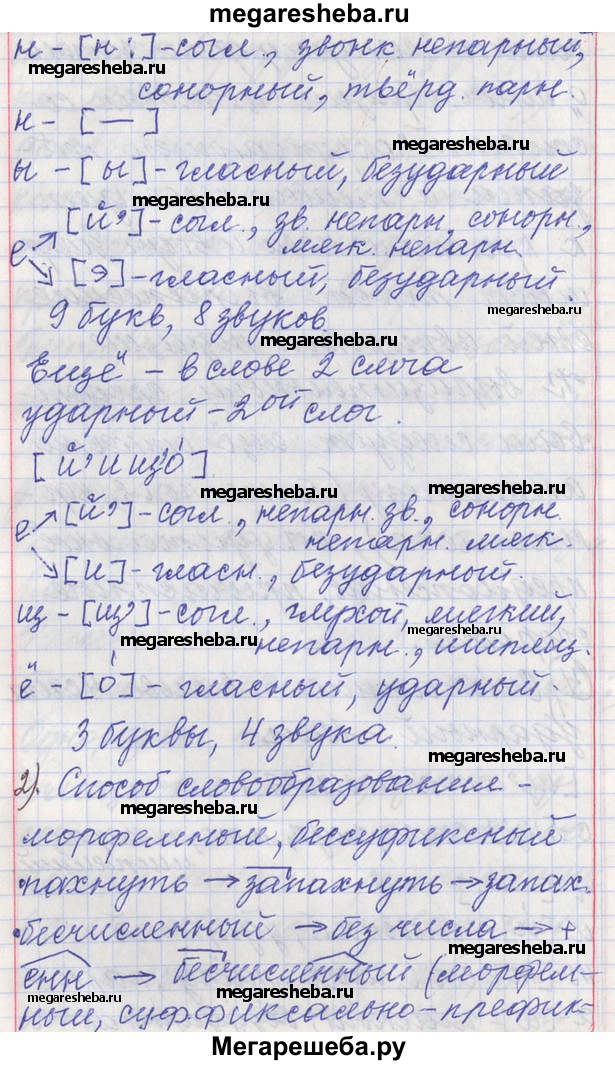 megaresheba.ru
н - [н:] - согл., звонк. непарный,
megaresheba.ru
сонорный, твёрд. парн.
н - [—]
megaresheba.ru
ы - [ы] - гласный, безударный
megaresheba.ru
е [й'] - согл., зв. непарн., сонорн.,
мягк. непарн.
[э] - гласный, безударный.
megaresheba.ru
9 букв, 8 звуков.
megaresheba.ru
Ещё - в слове 2 слога
ударный - 2ой слог.
[й'ищ'о́]
megaresheba.ru
е [й'] - согл., непарн. зв., сонорн.
непарн. мягк.
[и] - гласн., безударный.
megaresheba.ru
щ - [щ'] - согл., глухой, мягкий,
megaresheba.ru
непарн., шипящ.
megaresheba.ru
ё - [о́] - гласный, ударный.
3 буквы, 4 звука.
megaresheba.ru
2). Способ словообразования -
megaresheba.ru
морфемный, бессуфиксный
• пахнуть → запахнуть → запах.
megaresheba.ru
• бесчисленный → без числа → +
megaresheba.ru
енн → бесчисленный (морфем-
megaresheba.ru
ный, суффиксально-префик-
Мегарешеба.ру